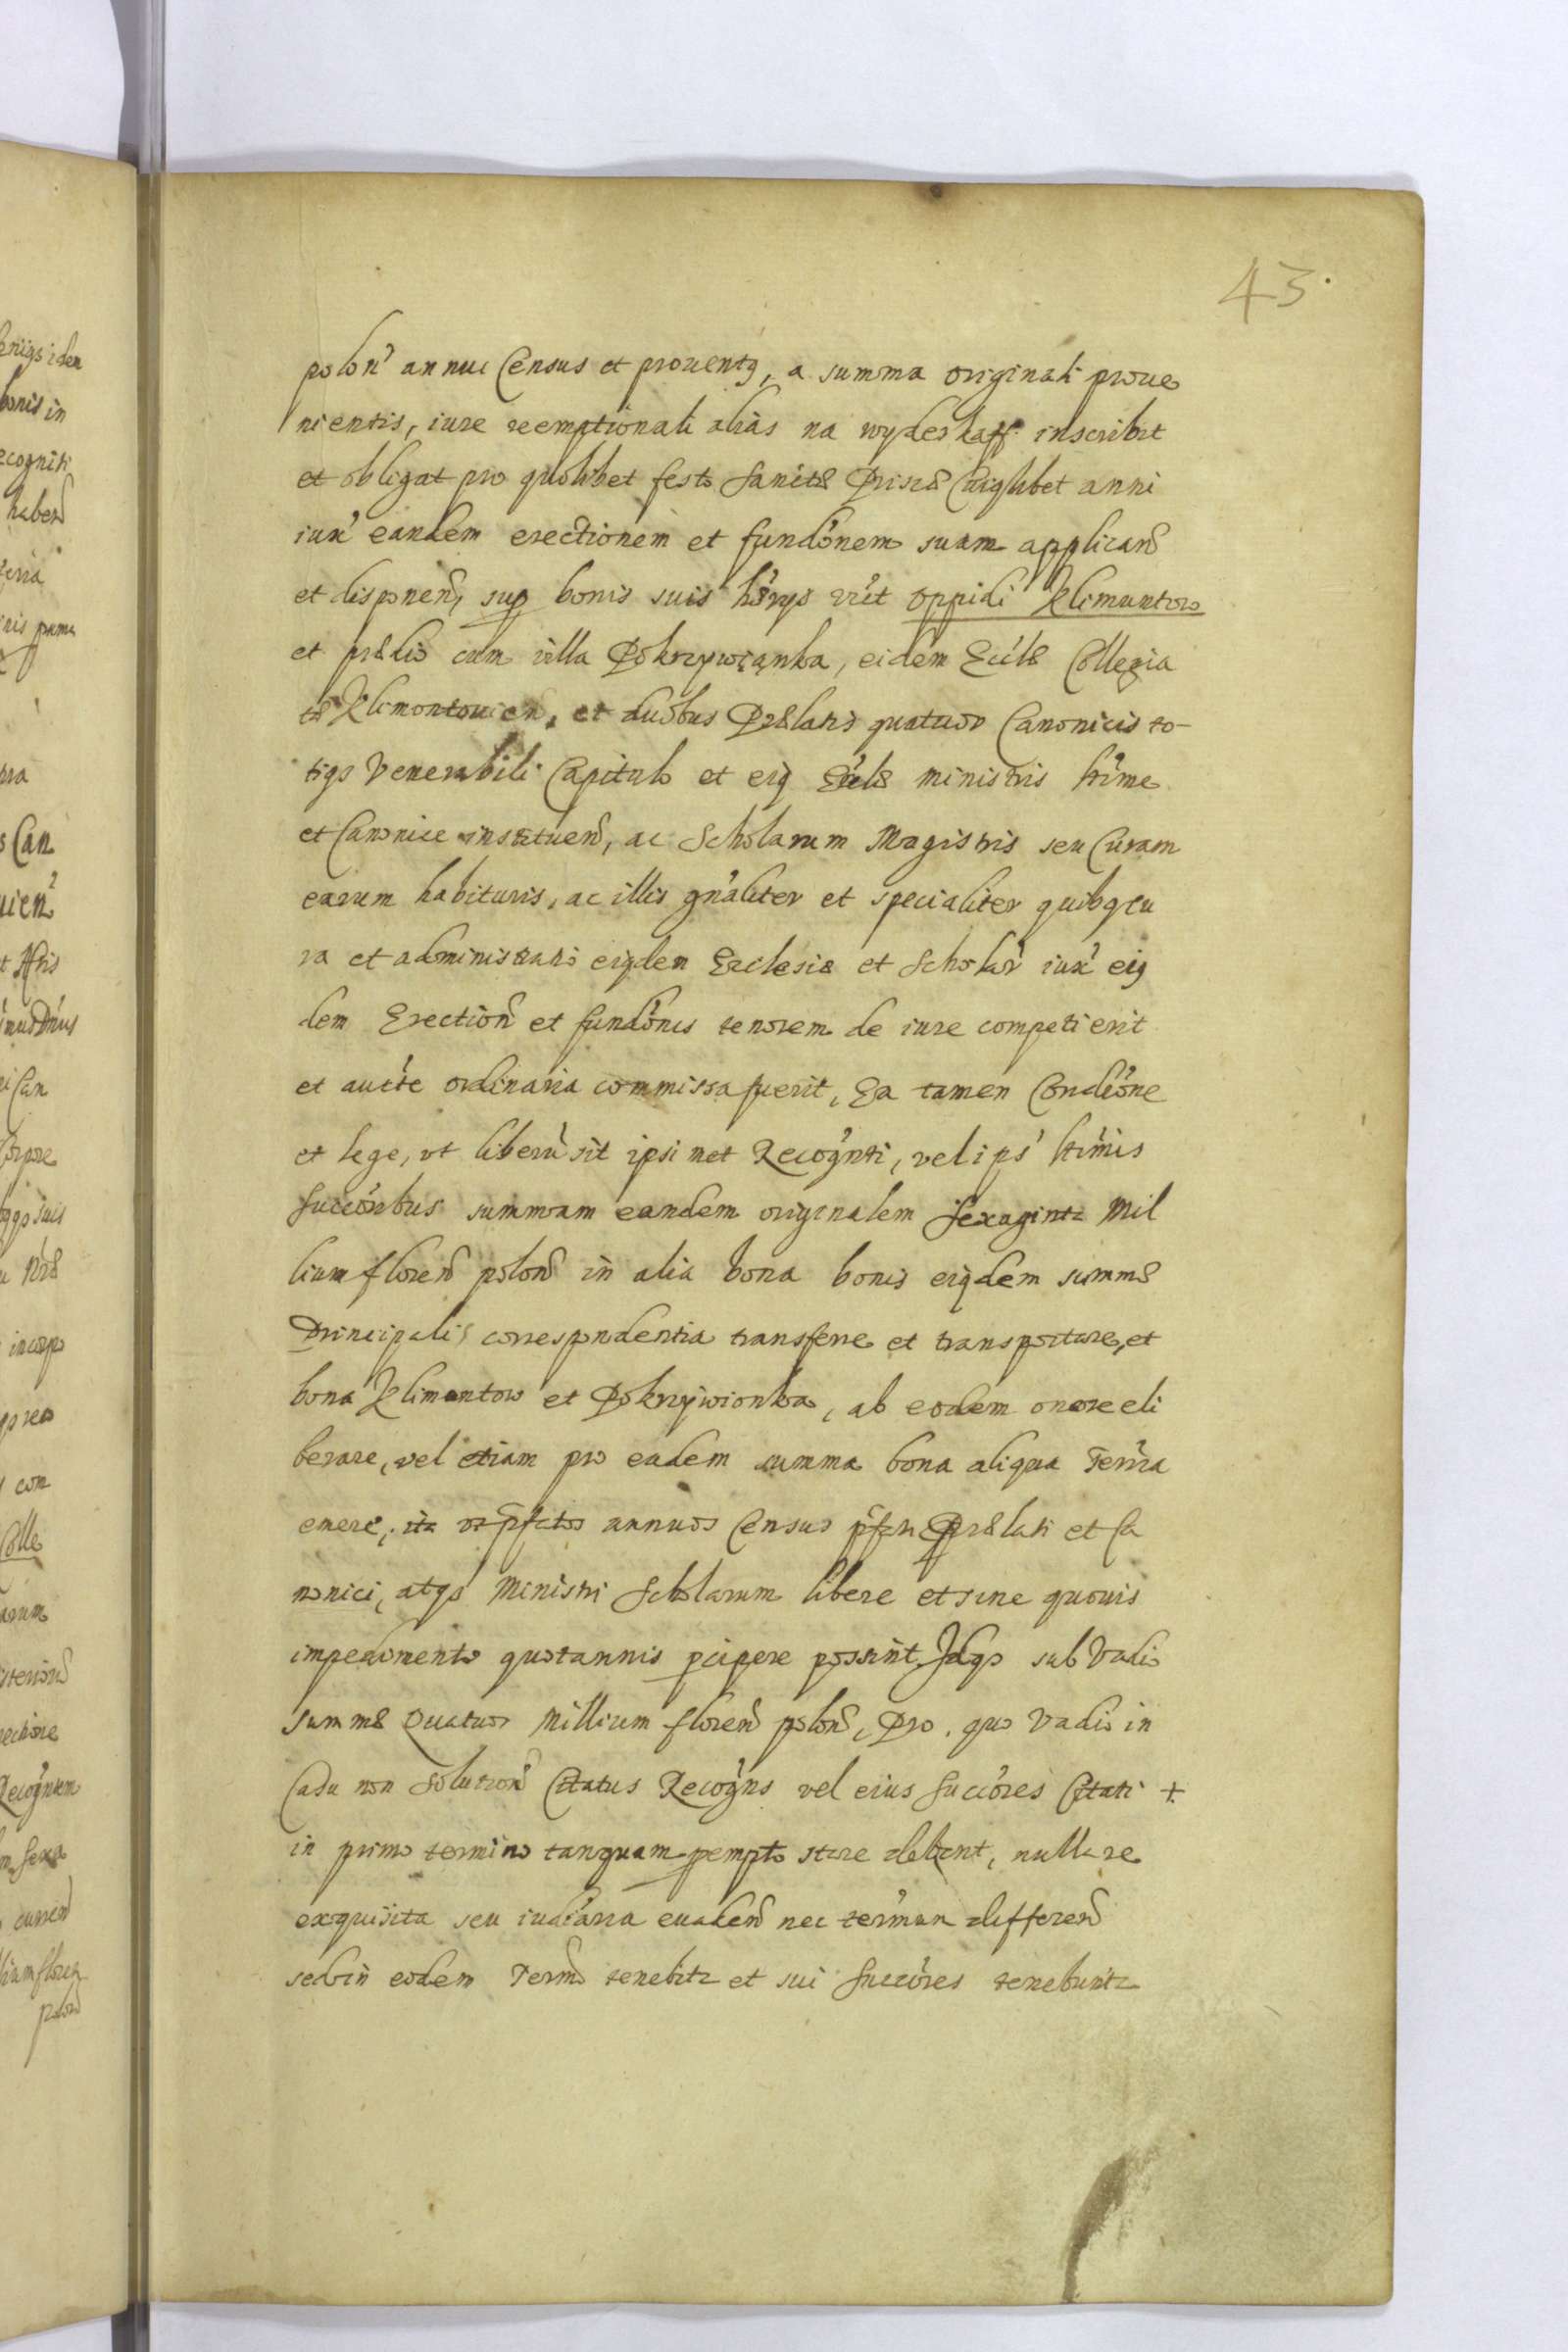 43.
polon annui Census et prouentus, a summa originali proue
nientis, iure reemptionali alias na wyderkaff inscribit
et obligat pro quolibet festo Sanctæ Priscæ Cuiuslibet anni
iux eandem erectionem et fundonem suam applicand
et disponend, sup bonis suis hæryd vtt oppidi Klimuntow
et prædio cum villa Pokrzywiąnka, eidem Eccle Collegia
tæ Klimontouien, et duobus Prælatis quatuor Canonicis to-
tiqs Venerabili Capitulo et eius Ecclæ ministris ltime
et Canonice instituend, ac Scholarum Magistris seu Curam
earum habituris, ac illis gnaliter et specialiter quibus cu
ra et administratio eiusdem Ecclesiæ et Scholar iux eius
dem Erection et fundonis tenorem de iure competierit
et aucte ordinaria commissa fuerit, Ea tamen Condione
et lege, vt liberu sit ipsi met Recognti, vel ips ltimis
Succoribus summam eandem originalem Sexaginta Mil
lium floren polon in alia bona bonis eiusdem summæ
Principalis correspondentia transferre et transportare, et
bona Klimuntow et Pokrzywionka, ab eodem onere eli
berare, vel etiam pro eadem summa bona aliqua Terrra
emere, ita vt pfatos annuos Census pfati Prælati et Ca
nonici, atqs Ministri Scholarum libere et sine quouis
impedimento quotannis pcipere possint. Idqs sub Vadio
summæ Quatuor Millium floren polon, Pro quo Vadio in
Casu non solution Citatus Recogns vel eius Succores Citati +
in primo termino tanquam pempto stare debent, nulla re
exquisita seu iudiaria euadend nec terminum differend
sed in eodem Termo tenebitr et sui Succores tenebuntr